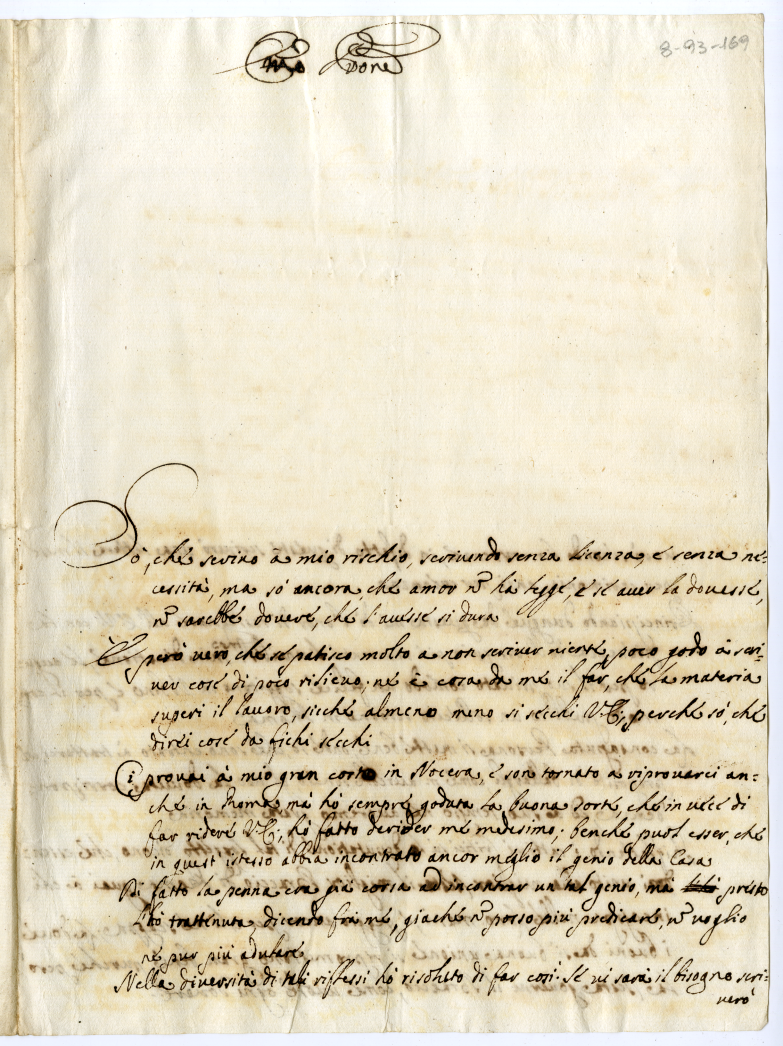 8-93-169
Emo Pone
Sò, che scrivo à mio rischio, scrivendo senza licenza, e senza ne=
cessità, ma só ancora, che amor nō hà legge, e se aver la dovesse,
nō sarebbe dovere, che l'avesse si dura
È però vero, che se patisco molto a non scriver niente, poco godo à scri=
ver cose di poco rilievo; ne è cosa da me il far, che la materia
superi il lavoro, sicche almeno meno si secchi V.E., perche só, che
direi cose da fichi secchi
Ci provai à mio gran costo in Nocera, e son tornato a riprovarci an=
che in Roma, mà hò sempre goduta la buona sorte, che in vece di
far ridere V.E., hò fatto derider me medesimo; benche puol esser, che
in quest'istesso abbia incontrato ancor meglio il genio della Casa
Di fatto la penna era già corsa ad incontrar un tal genio, mà presto
l'hò trattenuta dicendo frà me, giache nō posso più predicare, nō voglio
ne pur più adulare
Nella diversità di tali riflessi hò risoluto di far così. Se vi sarà il bisogno scri=
verò